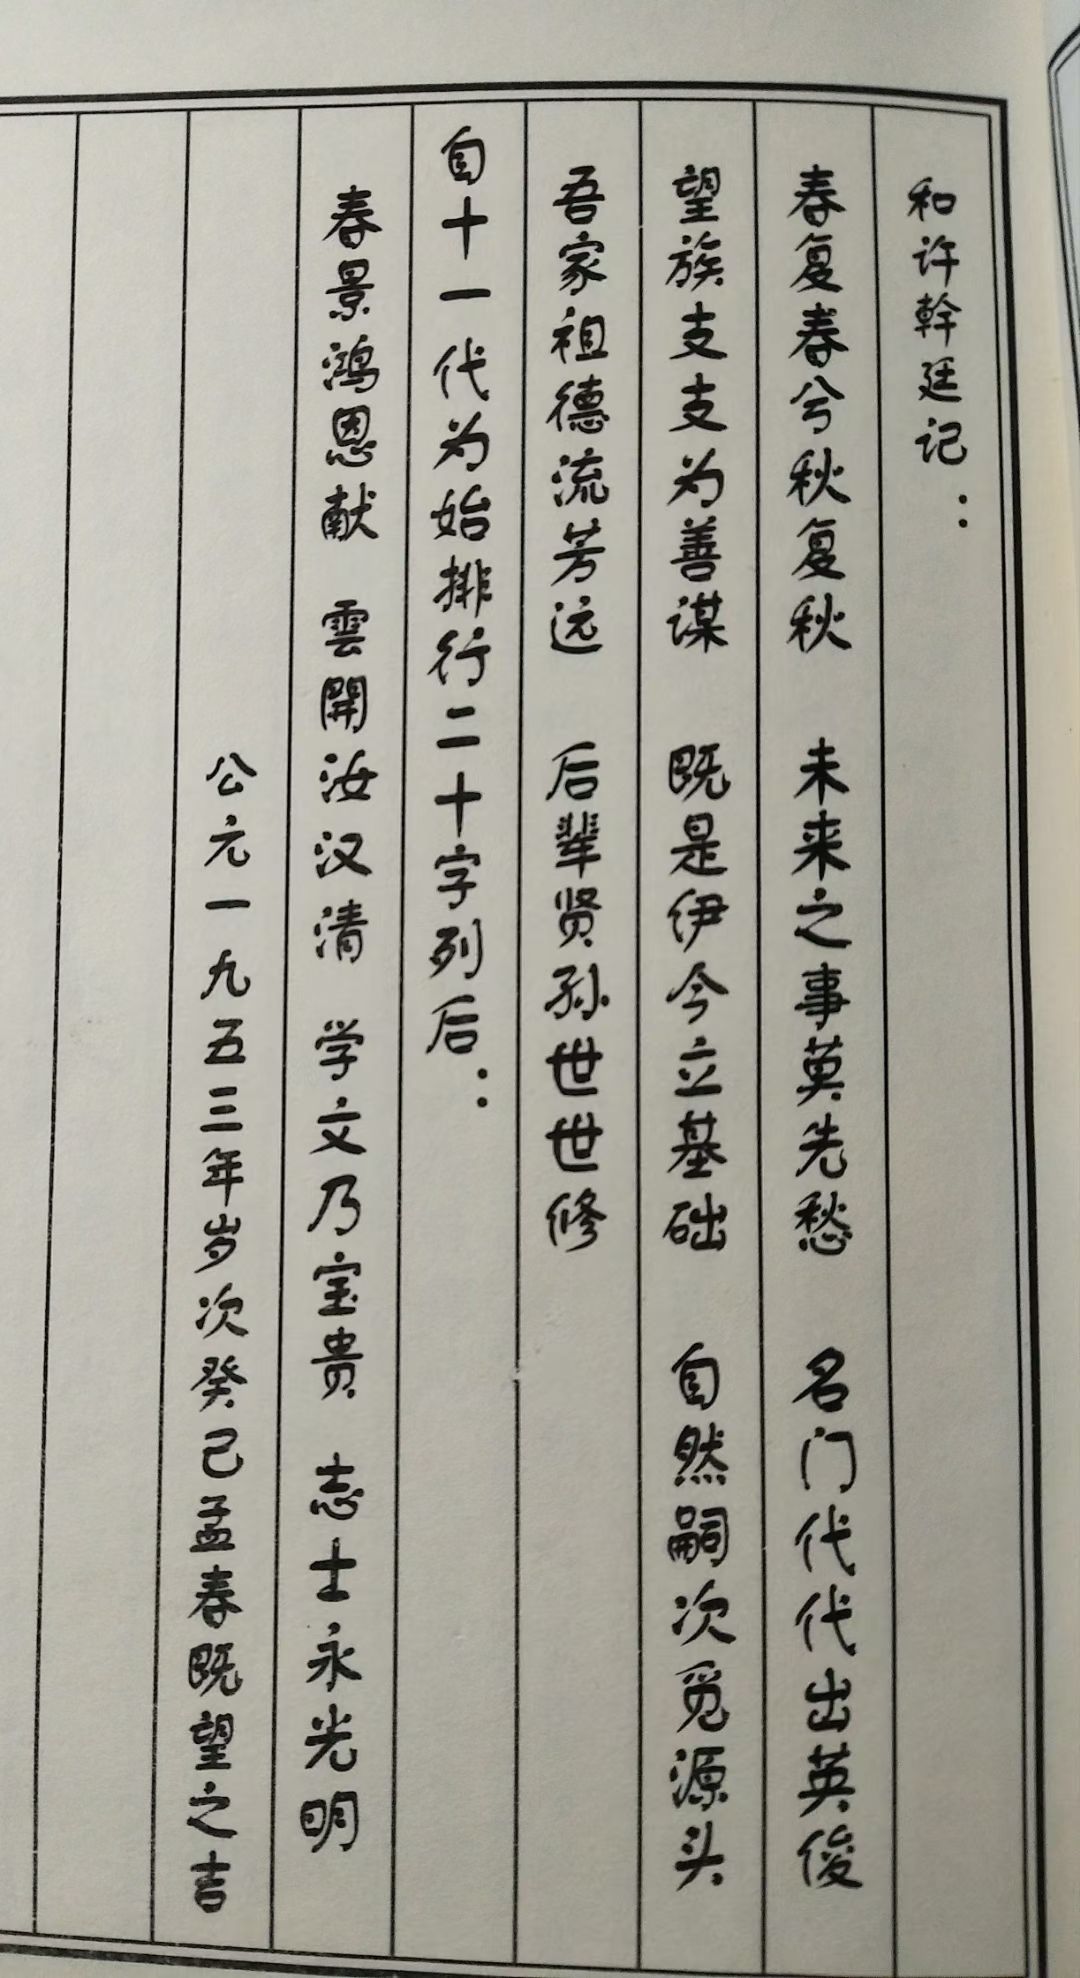 和许幹廷记：
春复春兮秋复秋 未来之事莫先愁 名门代代出英俊
望族支支为善谋 既是伊今立基础 自然嗣次觅源头
吾家祖德流芳远 后辈贤孙世世修
自十一代为始排行二十字列后：
春景鸿恩献 雲開汝汉清 学文乃宝贵 志士永光明
公元一九五三年岁次癸己孟春既望之吉